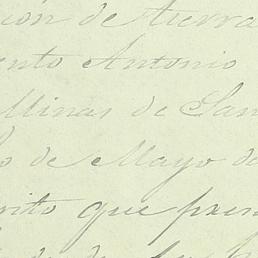 ión de tierra
ento Antonio
Minas de San
o de Mayo de
rito que pren